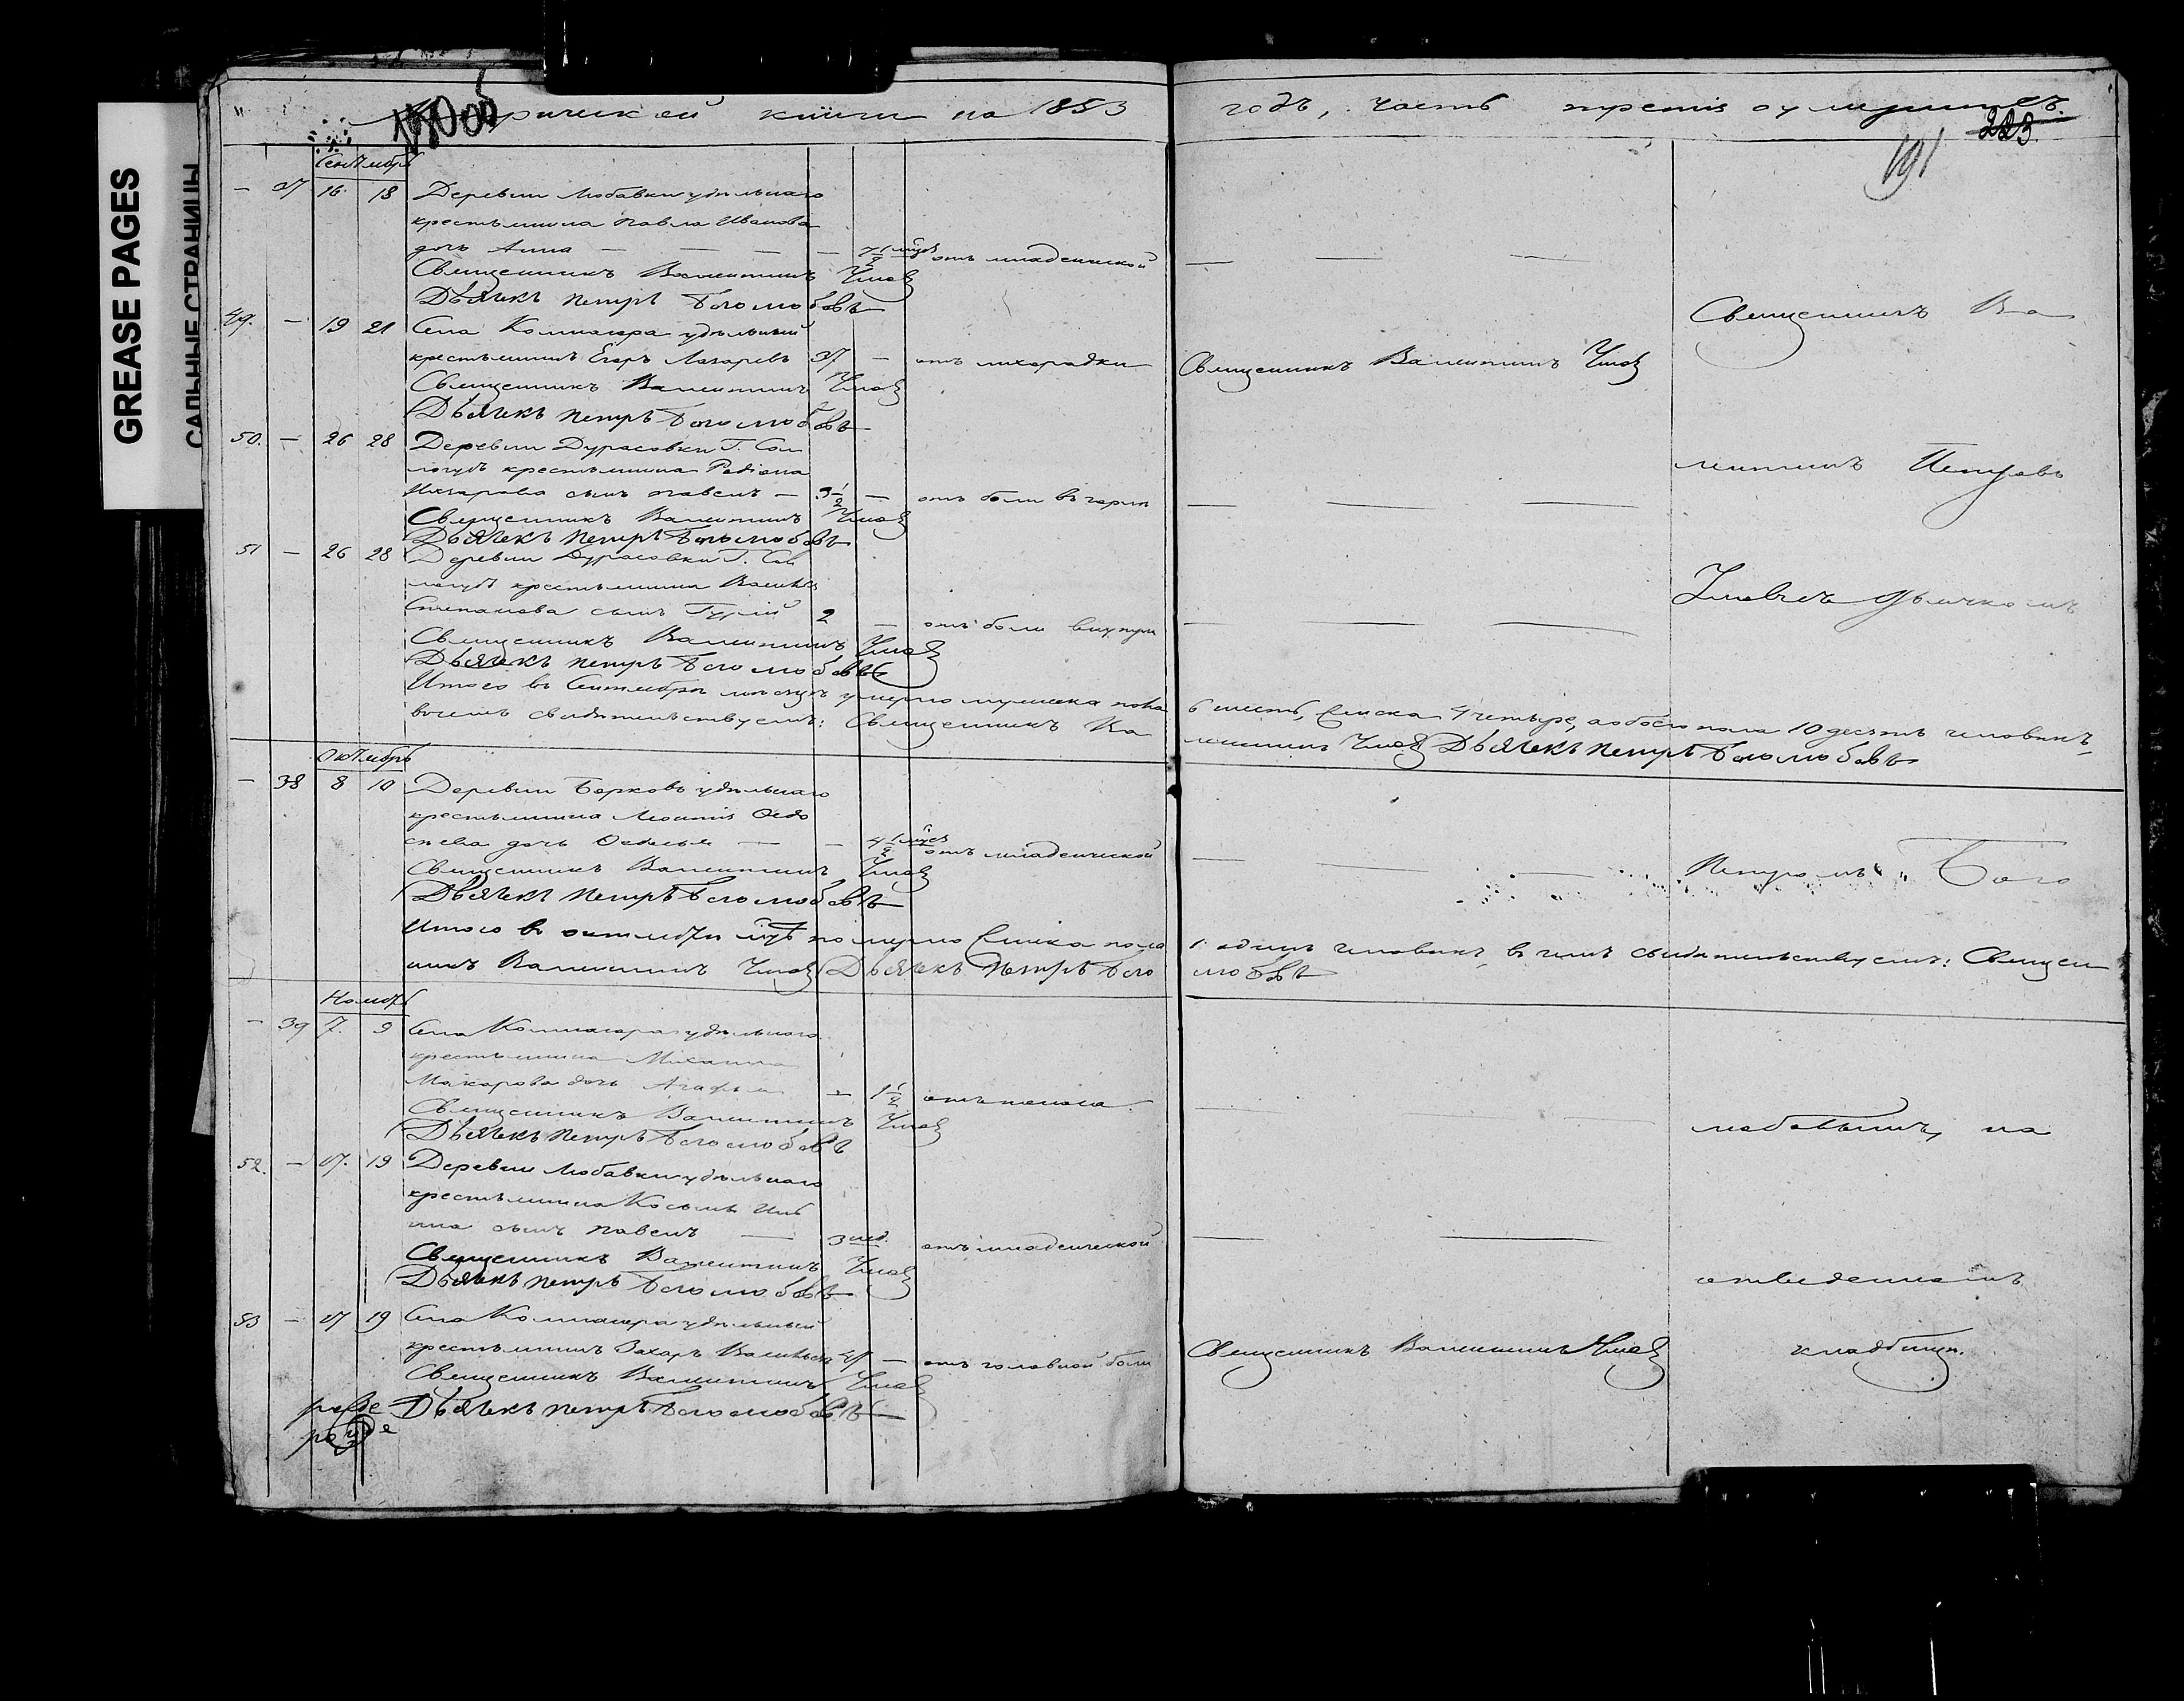 GREASE PAGES
САЛЬНЫЕ СТРАНИЦЫ
книги на 1853
годъ, часть третія о умершихъ.
223
191
Сентябрь
— 37 16 18 Деревни Любавки удѣльнаго
крестьянина Павла Иванова
дочь Анна — — — — отъ младенческой
Священникъ Валентинъ
Дьячекъ Петръ Боголюбовъ
49. — 19 21 Села Колмаюра удѣльный
крестьянинъ Егоръ Лазаревъ 37 — отъ лихорадки
Священникъ Валентинъ
Священникъ Валентинъ
Дьячекъ Петръ Боголюбовъ
50. — 26 28 Деревни Дурасовки Г. Сол
логубъ крестьянина Родіона
сынъ Павелъ — 3 1/2 — отъ боли въ горлѣ
Священникъ Валентинъ
Дьячекъ Петръ Боголюбовъ
51 — 26 28 Деревни Дурасовки Г. Сол
логубъ крестьянина Василья
Степанова сынъ Гурій 2 — отъ боли внутри
Священникъ Валентинъ
Дьячекъ Петръ Боголюбовъ
Итого въ Сентябрѣ мѣсяцѣ умерло мужеска пола
6 шесть, женска 4 четыре, а обоего пола 10 десять человѣкъ,
въ чемъ свидѣтельствуемъ: Священникъ Ва
лентинъ Дьячекъ Петръ Боголюбовъ
Октябрь
— 38 8 10 Деревни Берковъ удѣльнаго
крестьянина Леонтія Ѳедо
сѣева дочь — — 4 1/2 отъ младенческой
Священникъ Валентинъ
Дьячекъ Петръ Боголюбовъ
Итого въ октябрѣ мѣсяцѣ померло женска пола
1 одинъ человѣкъ, въ чемъ свидѣтельствуемъ: Священ
никъ Валентинъ Дьячекъ Петръ Бого
любовъ
Ноябрь
— 39 7. 9 Села Колмаюра удѣльнаго
крестьянина Михаила
Макарова дочь Агафья — 1 1/2 отъ поноса.
Священникъ Валентинъ
Дьячекъ Петръ Боголюбовъ
52. — 17. 19 Деревни Любавки удѣльнаго
крестьянина Косьмы Иль
ина сынъ Павелъ — 3 нед. отъ младенческой
Священникъ Валентинъ
Дьячекъ Петръ Боголюбовъ
53 — 17 19 Села Колмаюра удѣльный
крестьянинъ Захаръ Васильевъ — отъ головной боли
Священникъ Валентинъ
Священникъ Валентинъ
Дьячекъ Петръ Боголюбовъ
Священникъ Ва
лентинъ Петровъ
дьячкомъ
Петромъ Бого
любовымъ, на
отведенномъ
кладбищѣ.